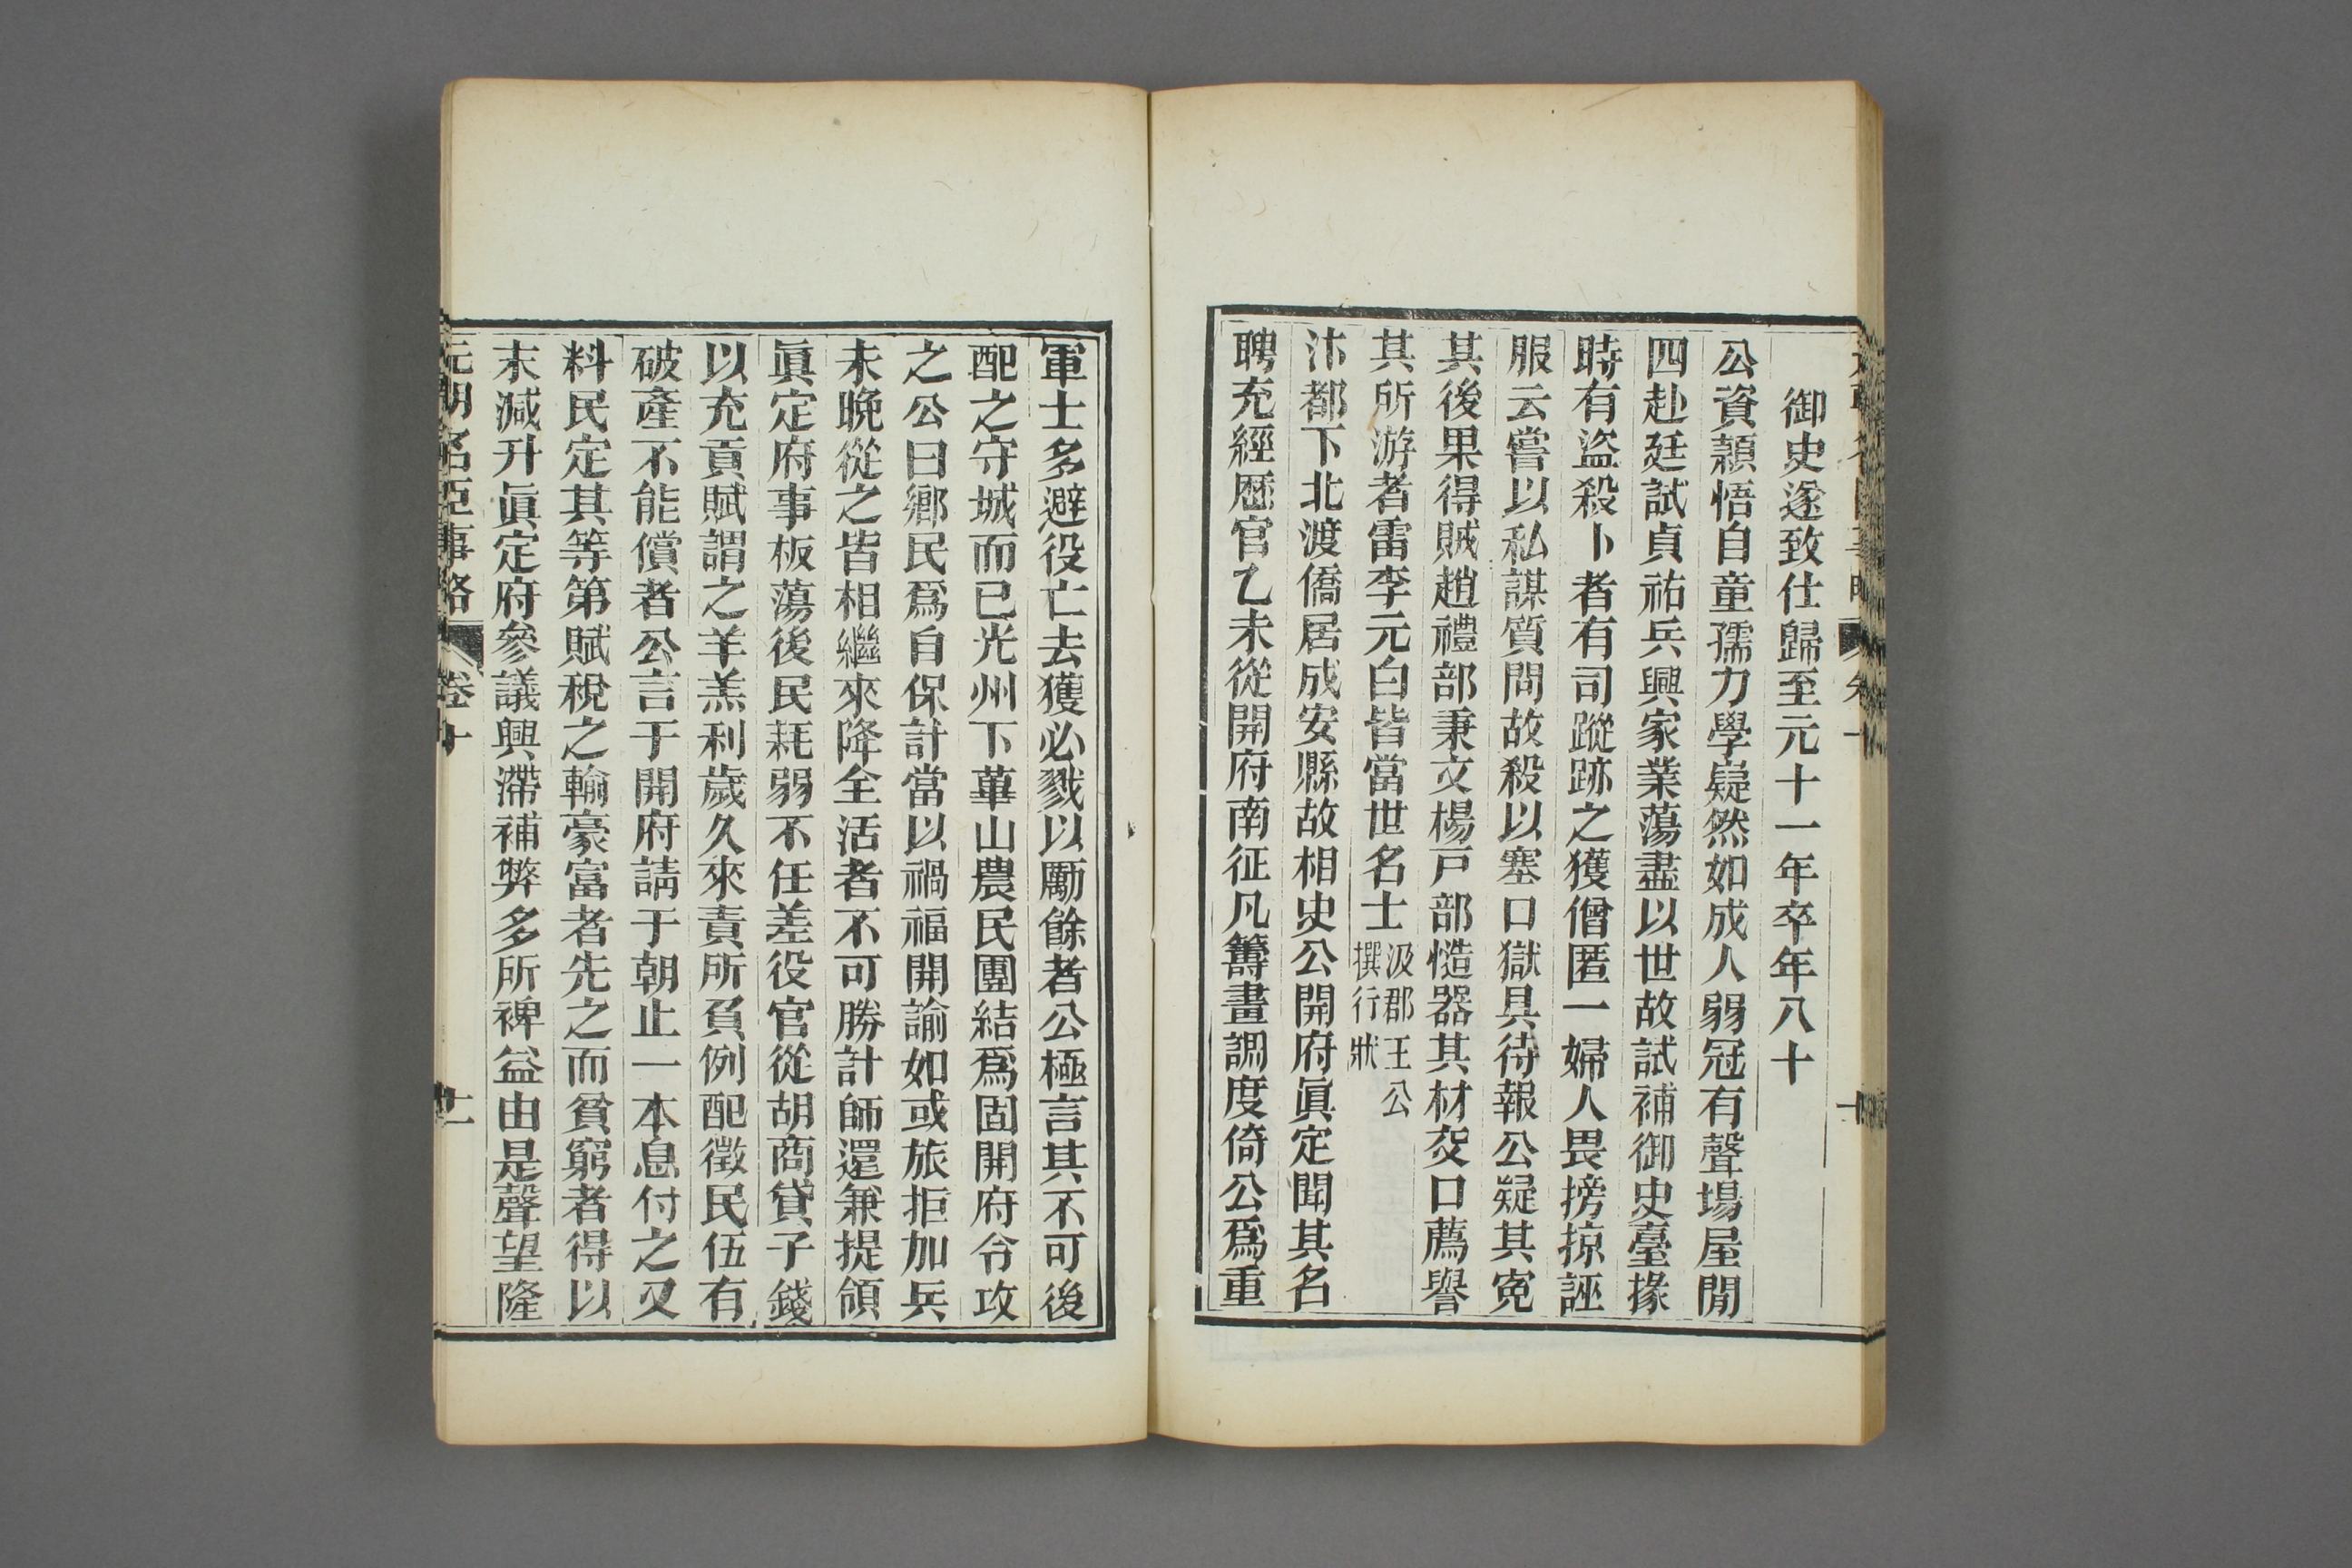 御史遂致仕歸至元十一年卒年八十
公資顈悟自童孺力學嶷然如成人弱冠有聲場屋閒
四赴廷試貞祐兵興家業蕩盡以世故試補御史臺掾
時有盜殺卜者有司蹤跡之獲僧匿一婦人畏搒掠誣
服云嘗以私謀質問故殺以塞口獄具待報公疑其寃
其後果得賊趙禮部秉文楊戸部慥器其材交口薦譽
其所游者雷李元白皆當世名士汲郡王公撰行狀
汴都下北渡僑居成安縣故相史公開府眞定聞其名
聘充經歴官乙未從開府南征凡籌畫調度倚公爲重
軍士多避役亡去獲必戮以勵餘者公極言其不可後
配之守城而已光州下華山農民團結爲固開府令攻
之公曰鄉民爲自保計當以禍福開諭如或旅拒加兵
未晚從之皆相繼來降全活者不可勝計師還兼提領
眞定府事板蕩後民耗弱不任差役官從胡商貸子錢
以充貢賦謂之羊羔利歲久來責所負例配徵民伍有
破產不能償者公言于開府請于朝止一本息付之又
料民定其等第賦稅之輸豪富者先之而貧窮者得以
末減升眞定府參議興滯補弊多所裨益由是聲望隆
元朝名臣事略 卷十 十一